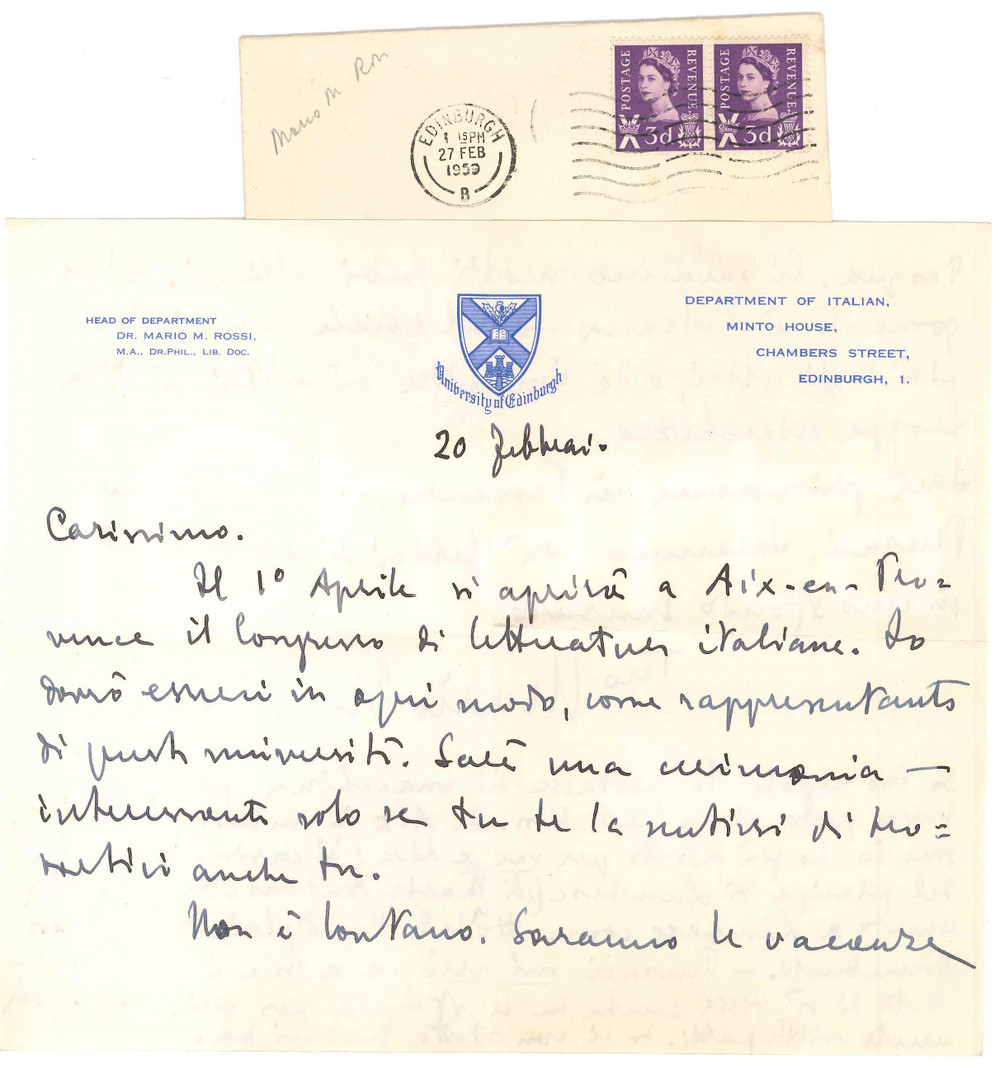 Mario M. Ro
EDINBURGH
15PM
27 FEB
1959
B
POSTAGE REVENUE
3d
POSTAGE REVENUE
3d
HEAD OF DEPARTMENT
DR. MARIO M. ROSSI,
M.A., DR.PHIL., LIB. DOC.
University of Edinburgh
DEPARTMENT OF ITALIAN,
MINTO HOUSE,
CHAMBERS STREET,
EDINBURGH, 1.
20 Febbrai.
Carissimo.
Il 1º Aprile si aprirà a Aix-en-Pro=
vence il Congresso di letteratura italiana. Io
dovrò esserci in ogni modo, come rappresentante
di questa università. Sarà una cerimonia —
interessante solo se tu te la sentissi di tro=
vartici anche tu.
Non è lontano. Saranno le vacanze